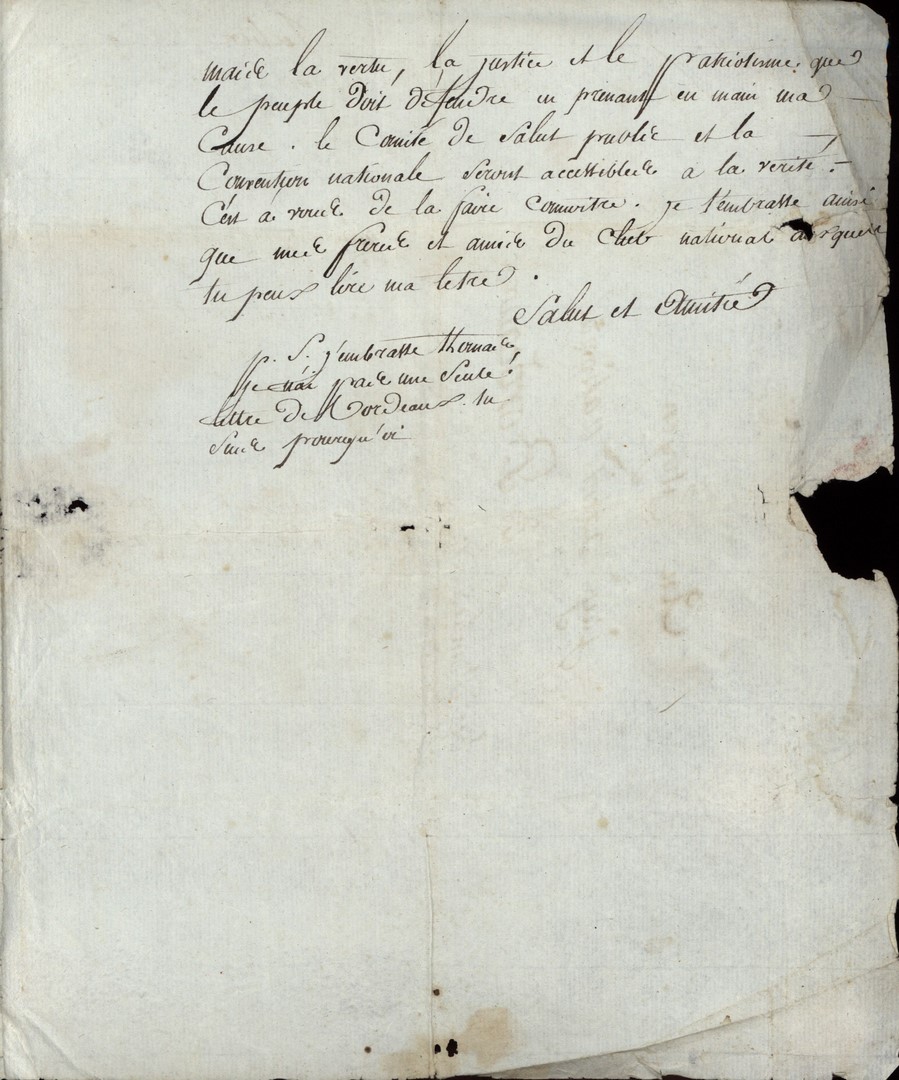 mais la vertu, la justice et le patriotisme que
le peuple doit défendre en prenant en main ma
Cause. le Comité de Salut public et la
Convention nationale seront accessibles a la verité.
C'est à vous de la faire connoitre. je t'embrasse ainsi
que mes freres et amis du Club national a
tu peux lire ma lettre.
Salut et Amitié
p. S. j'embrasse
je n'ai pas une seule
lettre de Bordeaux. tu
sais pourquoi